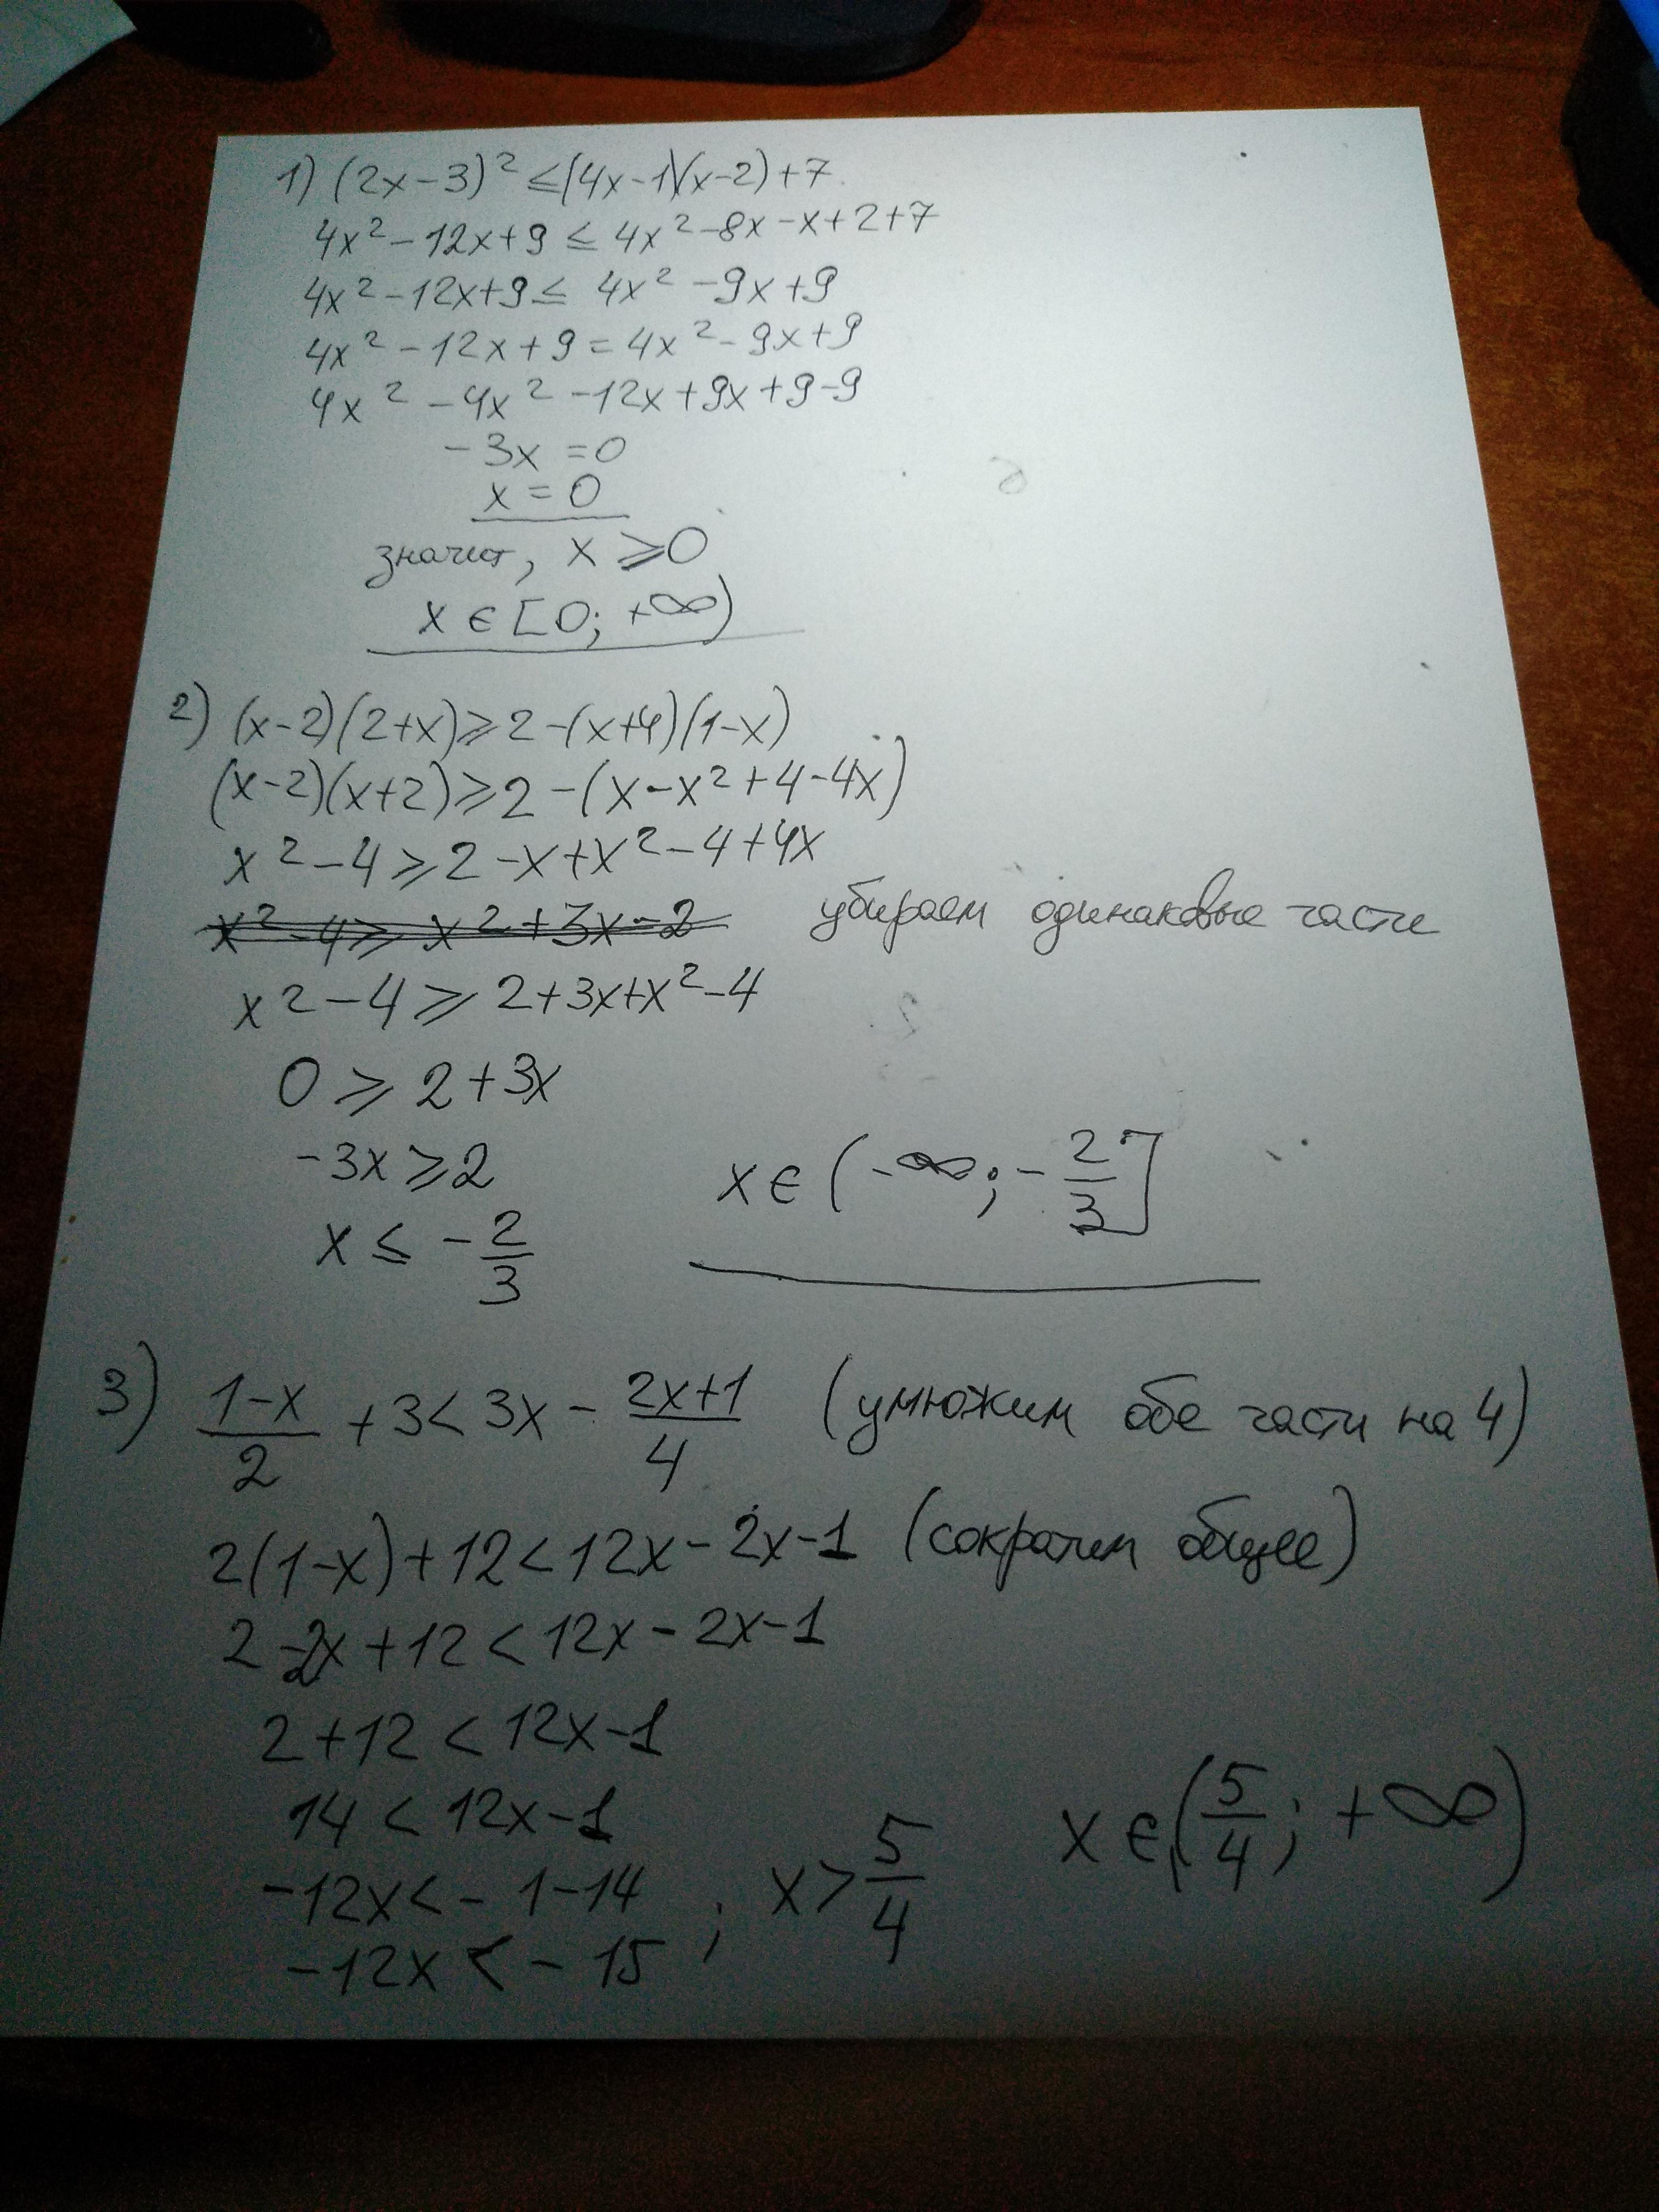 1) (2x-3)² ≤ (4x-1)(x-2)+7
4x²-12x+9 ≤ 4x²-8x-x+2+7
4x²-12x+9 ≤ 4x²-9x+9
4x²-12x+9 = 4x²-9x+9
4x²-4x²-12x+9x+9-9
-3x = 0
x = 0
значит, x ⩾ 0
x ∈ [0; +∞)
2) (x-2)(2+x) ⩾ 2-(x+4)(1-x)
(x-2)(x+2) ⩾ 2-(x-x²+4-4x)
x²-4 ⩾ 2-x+x²-4+4x
x²-4 ⩾ x²+3x-2 убираем одинаковые части
x²-4 ⩾ 2+3x+x²-4
0 ⩾ 2+3x
-3x ⩾ 2
x ≤ -2/3 x ∈ (-∞; -2/3]
3) (1-x)/2 + 3 < 3x - (2x+1)/4 (умножим обе части на 4)
2(1-x)+12 < 12x-2x-1 (сократим общее)
2-2x+12 < 12x-2x-1
2+12 < 12x-1
14 < 12x-1
-12x < -1-14
-12x < -15 ; x > 5/4 x ∈ (5/4; +∞)